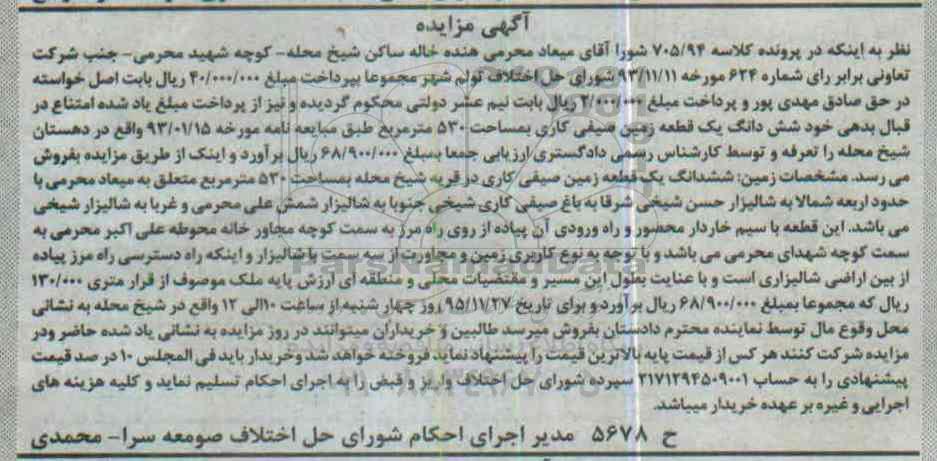 آگهی مزایده
نظر به اینکه در پرونده کلاسه ۷۰۵/۹۴ شورا آقای میعاد محرمی هنده خاله ساکن شیخ محله- کوچه شهید محرمی- جنب شرکت
تعاونی برابر رای شماره ۶۲۴ مورخه ۹۳/۱۱/۱۱ شورای حل اختلاف تولم شهر مجموعا بپرداخت مبلغ ۴۰/۰۰۰/۰۰۰ ریال بابت اصل خواسته
در حق صادق مهدی پور و پرداخت مبلغ ۲/۰۰۰/۰۰۰ ریال بابت نیم عشر دولتی محکوم گردیده و نیز از پرداخت مبلغ یاد شده امتناع در
قبال بدهی خود شش دانگ یک قطعه زمین صیفی کاری بمساحت ۵۳۰ مترمربع طبق مبایعه نامه مورخه ۹۳/۰۱/۱۵ واقع در دهستان
شیخ محله را تعرفه و توسط کارشناس رسمی دادگستری ارزیابی جمعا بمبلغ ۶۸/۹۰۰/۰۰۰ ریال برآورد و اینک از طریق مزایده بفروش
می رسد. مشخصات زمین: ششدانگ یک قطعه زمین صیفی کاری در قریه شیخ محله بمساحت ۵۳۰ مترمربع متعلق به میعاد محرمی با
حدود اربعه شمالا به شالیزار حسن شیخی شرقا به باغ صیفی کاری شیخی جنوبا به شالیزار شمش علی محرمی و غربا به شالیزار شیخی
می باشد. این قطعه با سیم خاردار محصور و راه ورودی آن پیاده از روی راه مرز به سمت کوچه مجاور خانه محوطه علی اکبر محرمی به
سمت کوچه شهدای محرمی می باشد و با توجه به نوع کاربری زمین و مجاورت از سه سمت با شالیزار و اینکه راه دسترسی راه مرز پیاده
از بین اراضی شالیزاری است و با عنایت بطول این مسیر و مقتضیات محلی و منطقه ای ارزش پایه ملک موصوف از قرار متری ۱۳۰/۰۰۰
ریال که مجموعا بمبلغ ۶۸/۹۰۰/۰۰۰ ریال برآورد و برای تاریخ ۹۵/۱۱/۲۷ روز چهار شنبه از ساعت ۱۰الی ۱۲ واقع در شیخ محله به نشانی
محل وقوع مال توسط نماینده محترم دادستان بفروش میرسد طالبین و خریداران میتوانند در روز مزایده به نشانی یاد شده حاضر ودر
مزایده شرکت کنند هر کس از قیمت پایه بالاترین قیمت را پیشنهاد نماید فروخته خواهد شد وخریدار باید فی المجلس ۱۰ در صد قیمت
پیشنهادی را به حساب ۲۱۷۱۲۹۴۵۰۹۰۰۱ سپرده شورای حل اختلاف واریز و قبض را به اجرای احکام تسلیم نماید و کلیه هزینه های
اجرایی و غیره بر عهده خریدار میباشد.
ح ۵۶۷۸ مدیر اجرای احکام شورای حل اختلاف صومعه سرا- محمدی
ParsNamadData